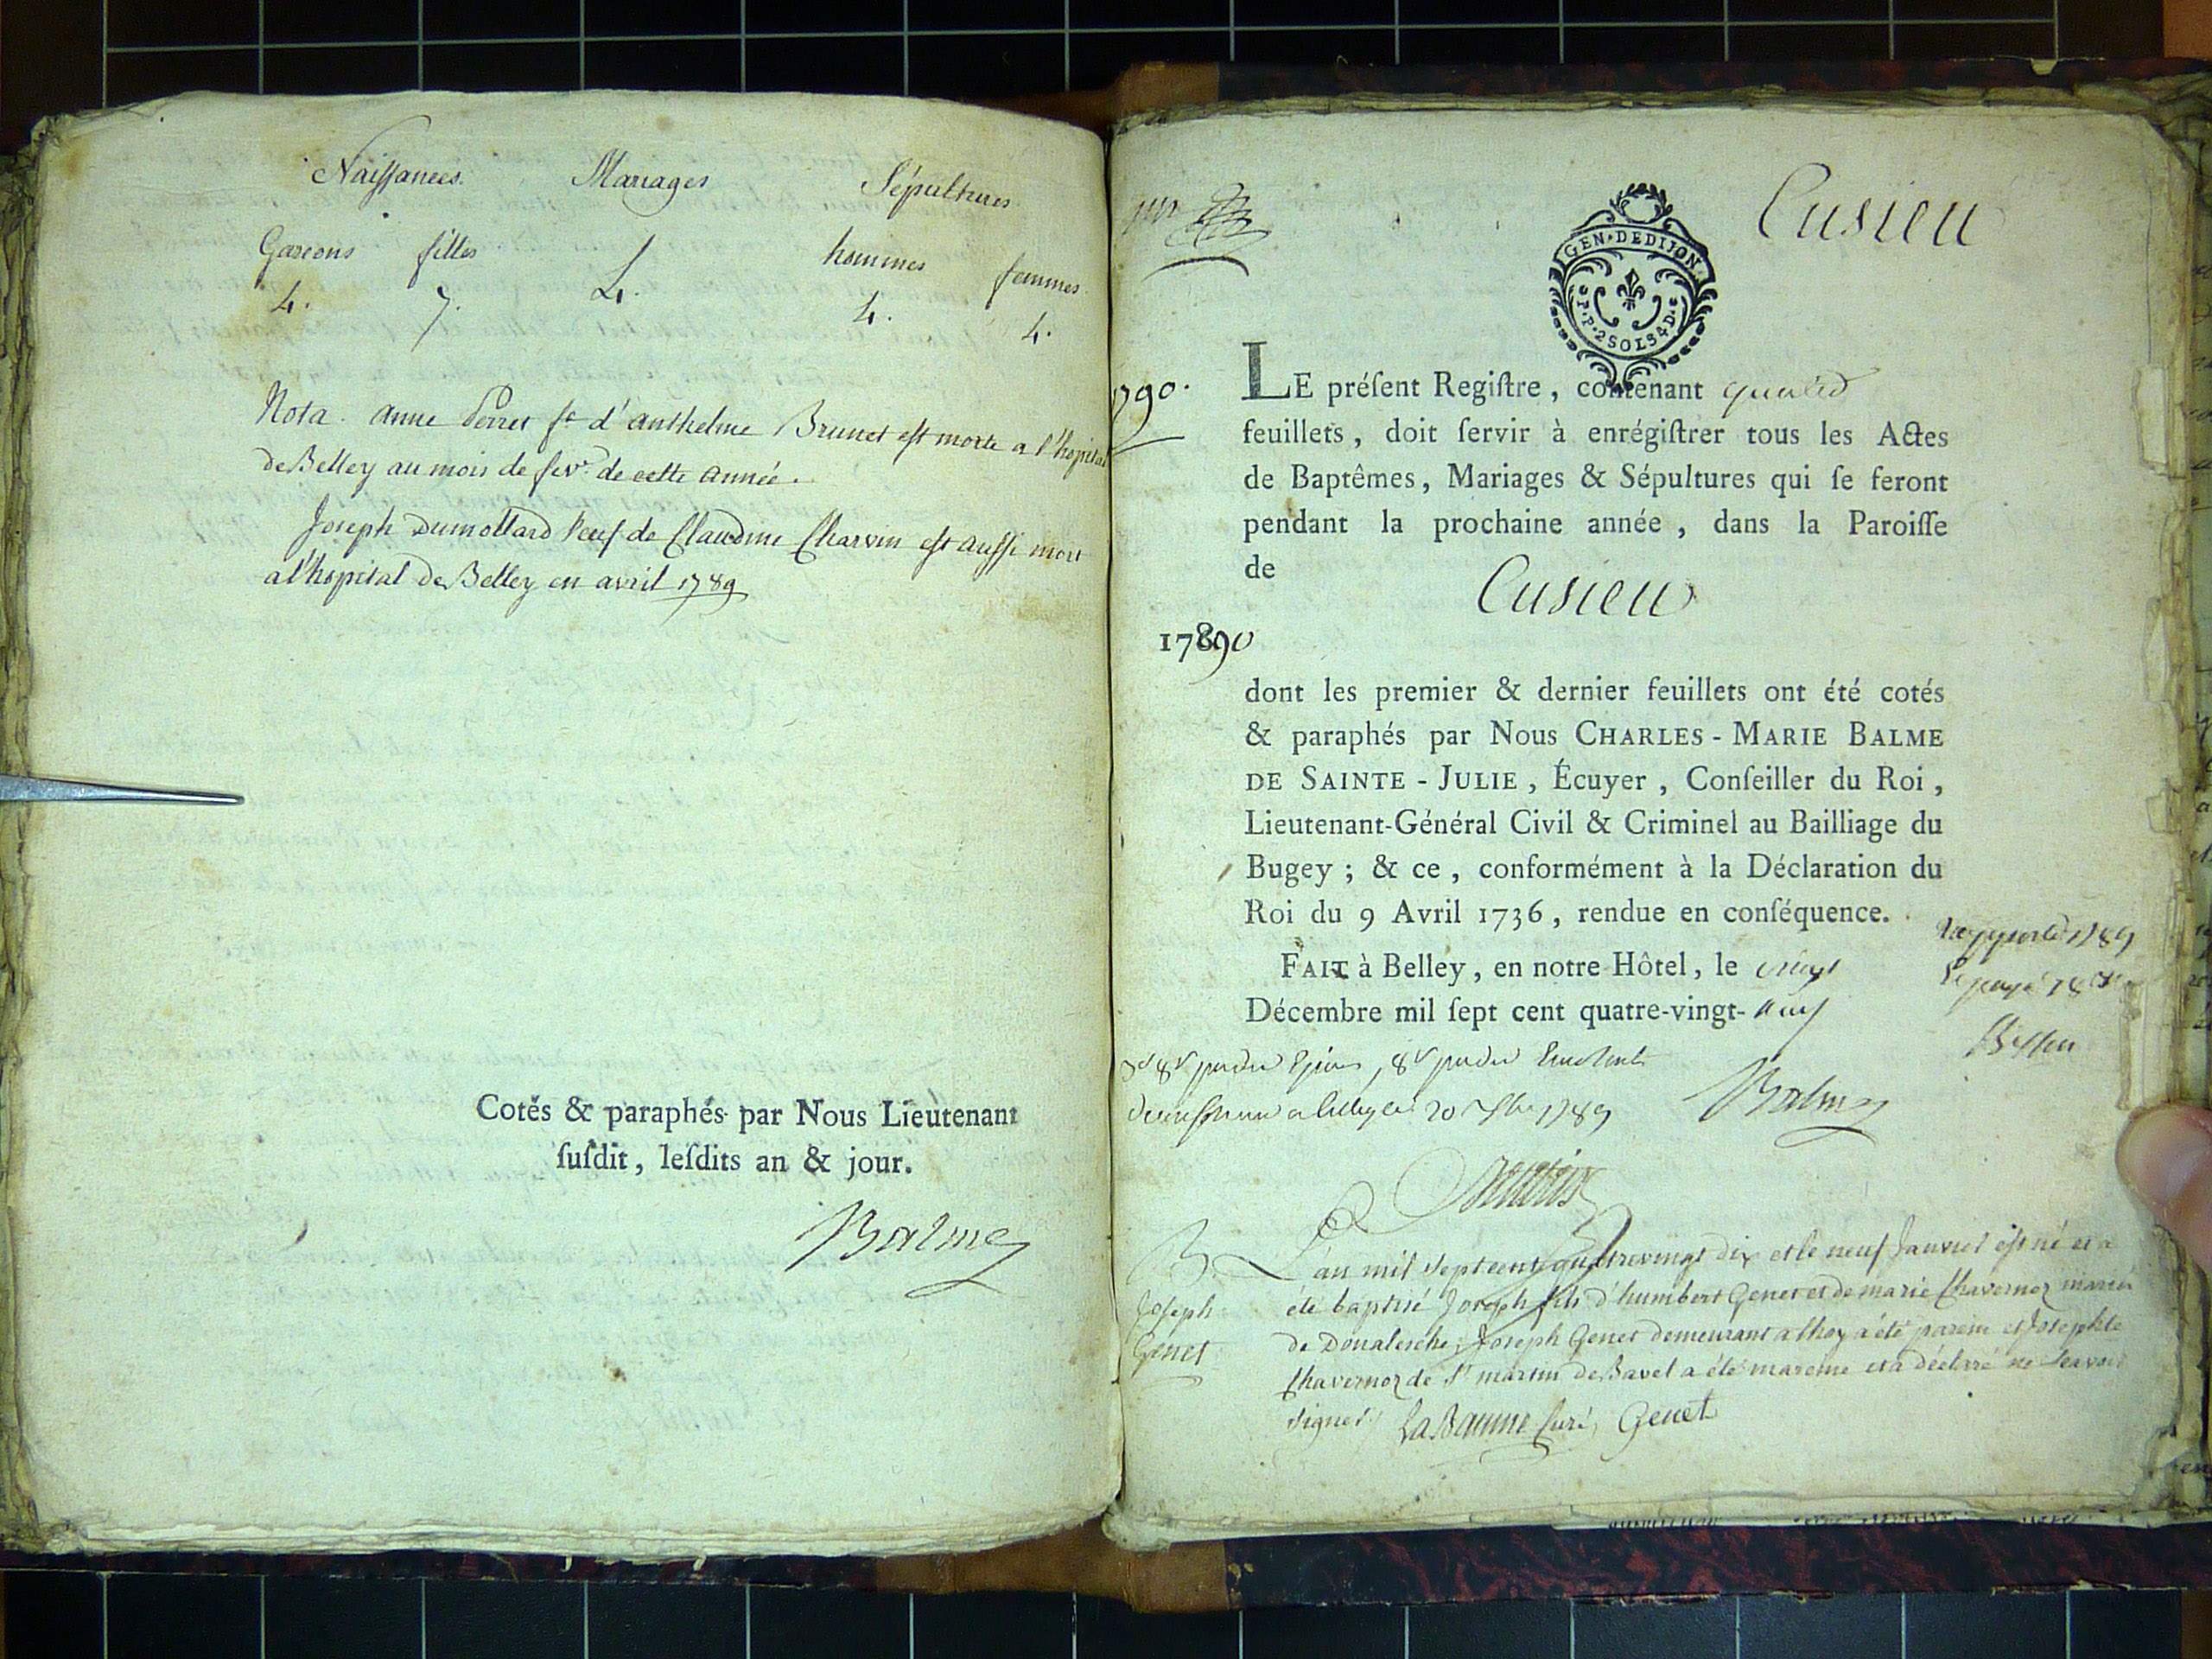 Naissances. Mariages Sépultures
Garcons filles hommes femmes
4. 7. 4. 4. 4.
Nota. anne perret fe d'anthelme Brunet est morte a l'hopital
de Belley au mois de fevr. de cette année.
Joseph Dumollard veuf de Claudine Charvin est aussi mort
a l'hopital de Belley en avril 1789
Cotés & paraphés par Nous Lieutenant
ſuſdit, leſdits an & jour.
Balme
Cusieu
GEN·DEDIJON
P·P·2SOLS4D
1790.
LE préſent Regiſtre, contenant
feuillets, doit ſervir à enrégiſtrer tous les Actes
de Baptêmes, Mariages & Sépultures qui ſe feront
pendant la prochaine année, dans la Paroiſſe
de Cusieu
17890
dont les premier & dernier feuillets ont été cotés
& paraphés par Nous CHARLES-MARIE BALME
DE SAINTE-JULIE, Écuyer, Conſeiller du Roi,
Lieutenant-Général Civil & Criminel au Bailliage du
Bugey; & ce, conformément à la Déclaration du
Roi du 9 Avril 1736, rendue en conſéquence.
FAIT à Belley, en notre Hôtel, le vingt
Décembre mil ſept cent quatre-vingt-neuf
1789
20 1789
Balme
B.
Joseph
Genet
L'an mil septcent quatrevingt dix et le neuf Janvier est né et a
été baptisé Joseph fils d'humbert Genet et de marie Chavernoz mariés
de Joseph Genet demeurant a été parein et Josephte
Chavernoz de St martin de Bavel a été mareine et a déclaré ne scavoir
signer LaBaume Curé Genet